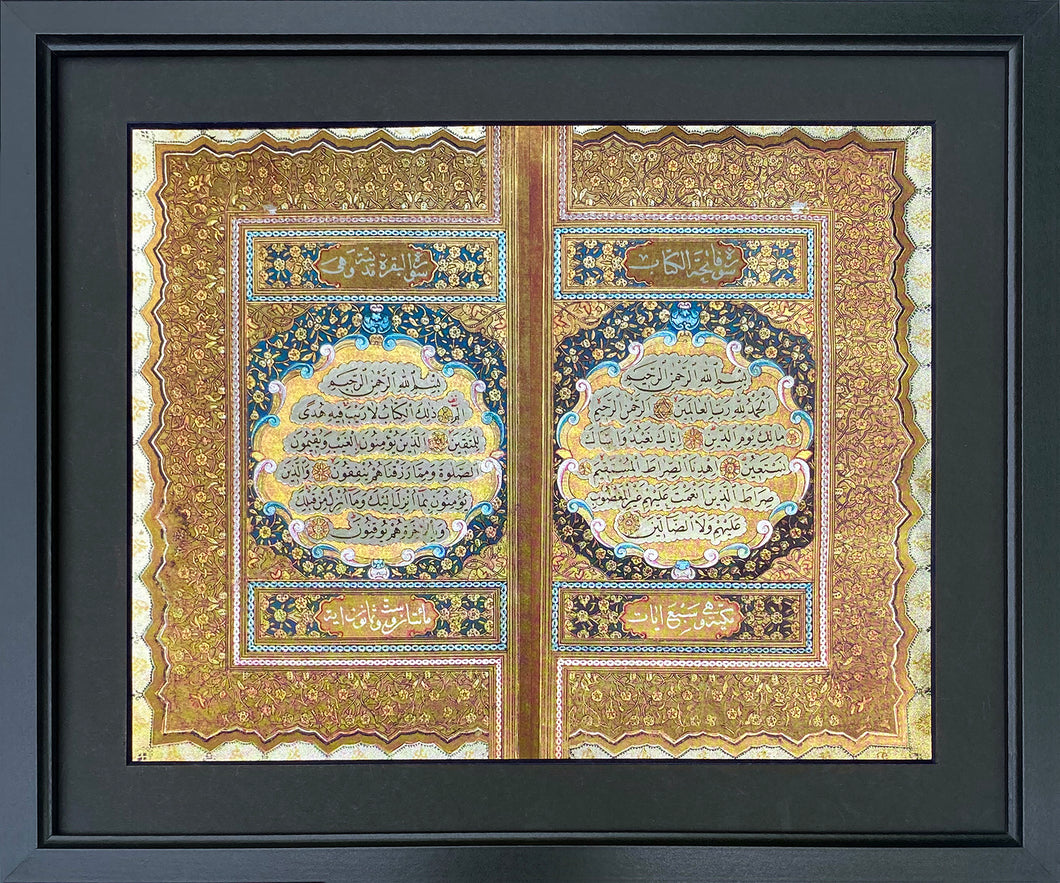 سورة فاتحة الكتاب
بسم الله الرحمن الرحيم
الحمد لله رب العالمين الرحمن الرحيم
مالك يوم الدين إياك نعبد وإياك
نستعين اهدنا الصراط المستقيم
صراط الذين أنعمت عليهم غير المغضوب
عليهم ولا الضالين
مكية وهي سبع آيات
سورة البقرة مدنية وهي
بسم الله الرحمن الرحيم
الم ذلك الكتاب لا ريب فيه هدى
للمتقين الذين يؤمنون بالغيب ويقيمون
الصلوة ومما رزقناهم ينفقون والذين
يؤمنون بما أنزل إليك وما أنزل من قبلك
وبالآخرة هم يوقنون
مائتان وست وثمانون آية